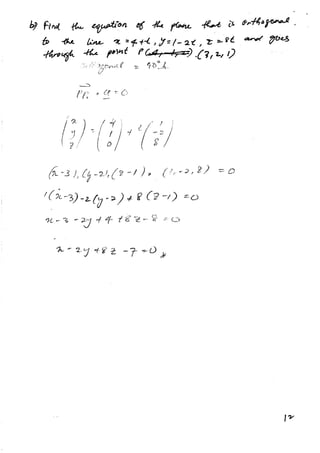 b) Find the equation of the plane that is orthogonal
to the line x = 4 + t, y = 1 - 2t, z = 8t and goes
through the point P (3, 2, 1)
orthogonal = 90°
= 0
(x y z) = (4 1 0) + t (1 -2 8)
(x-3), (y-2), (z-1) • (1, -2, 8) = 0
1(x-3) -2(y-2) + 8(z-1) = 0
x - 3 - 2y + 4 + 8z - 8 = 0
x - 2y + 8z - 7 = 0
12